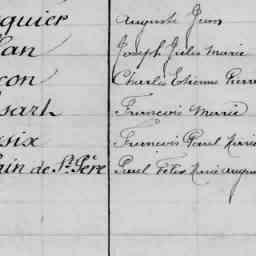 quier Auguste Jean
lan Joseph Jules Marie
çon Charles Etienne Pierre
sart Francois Marie
six Francois Paul Marie
hin de St. Père Paul Felix Marie Augus